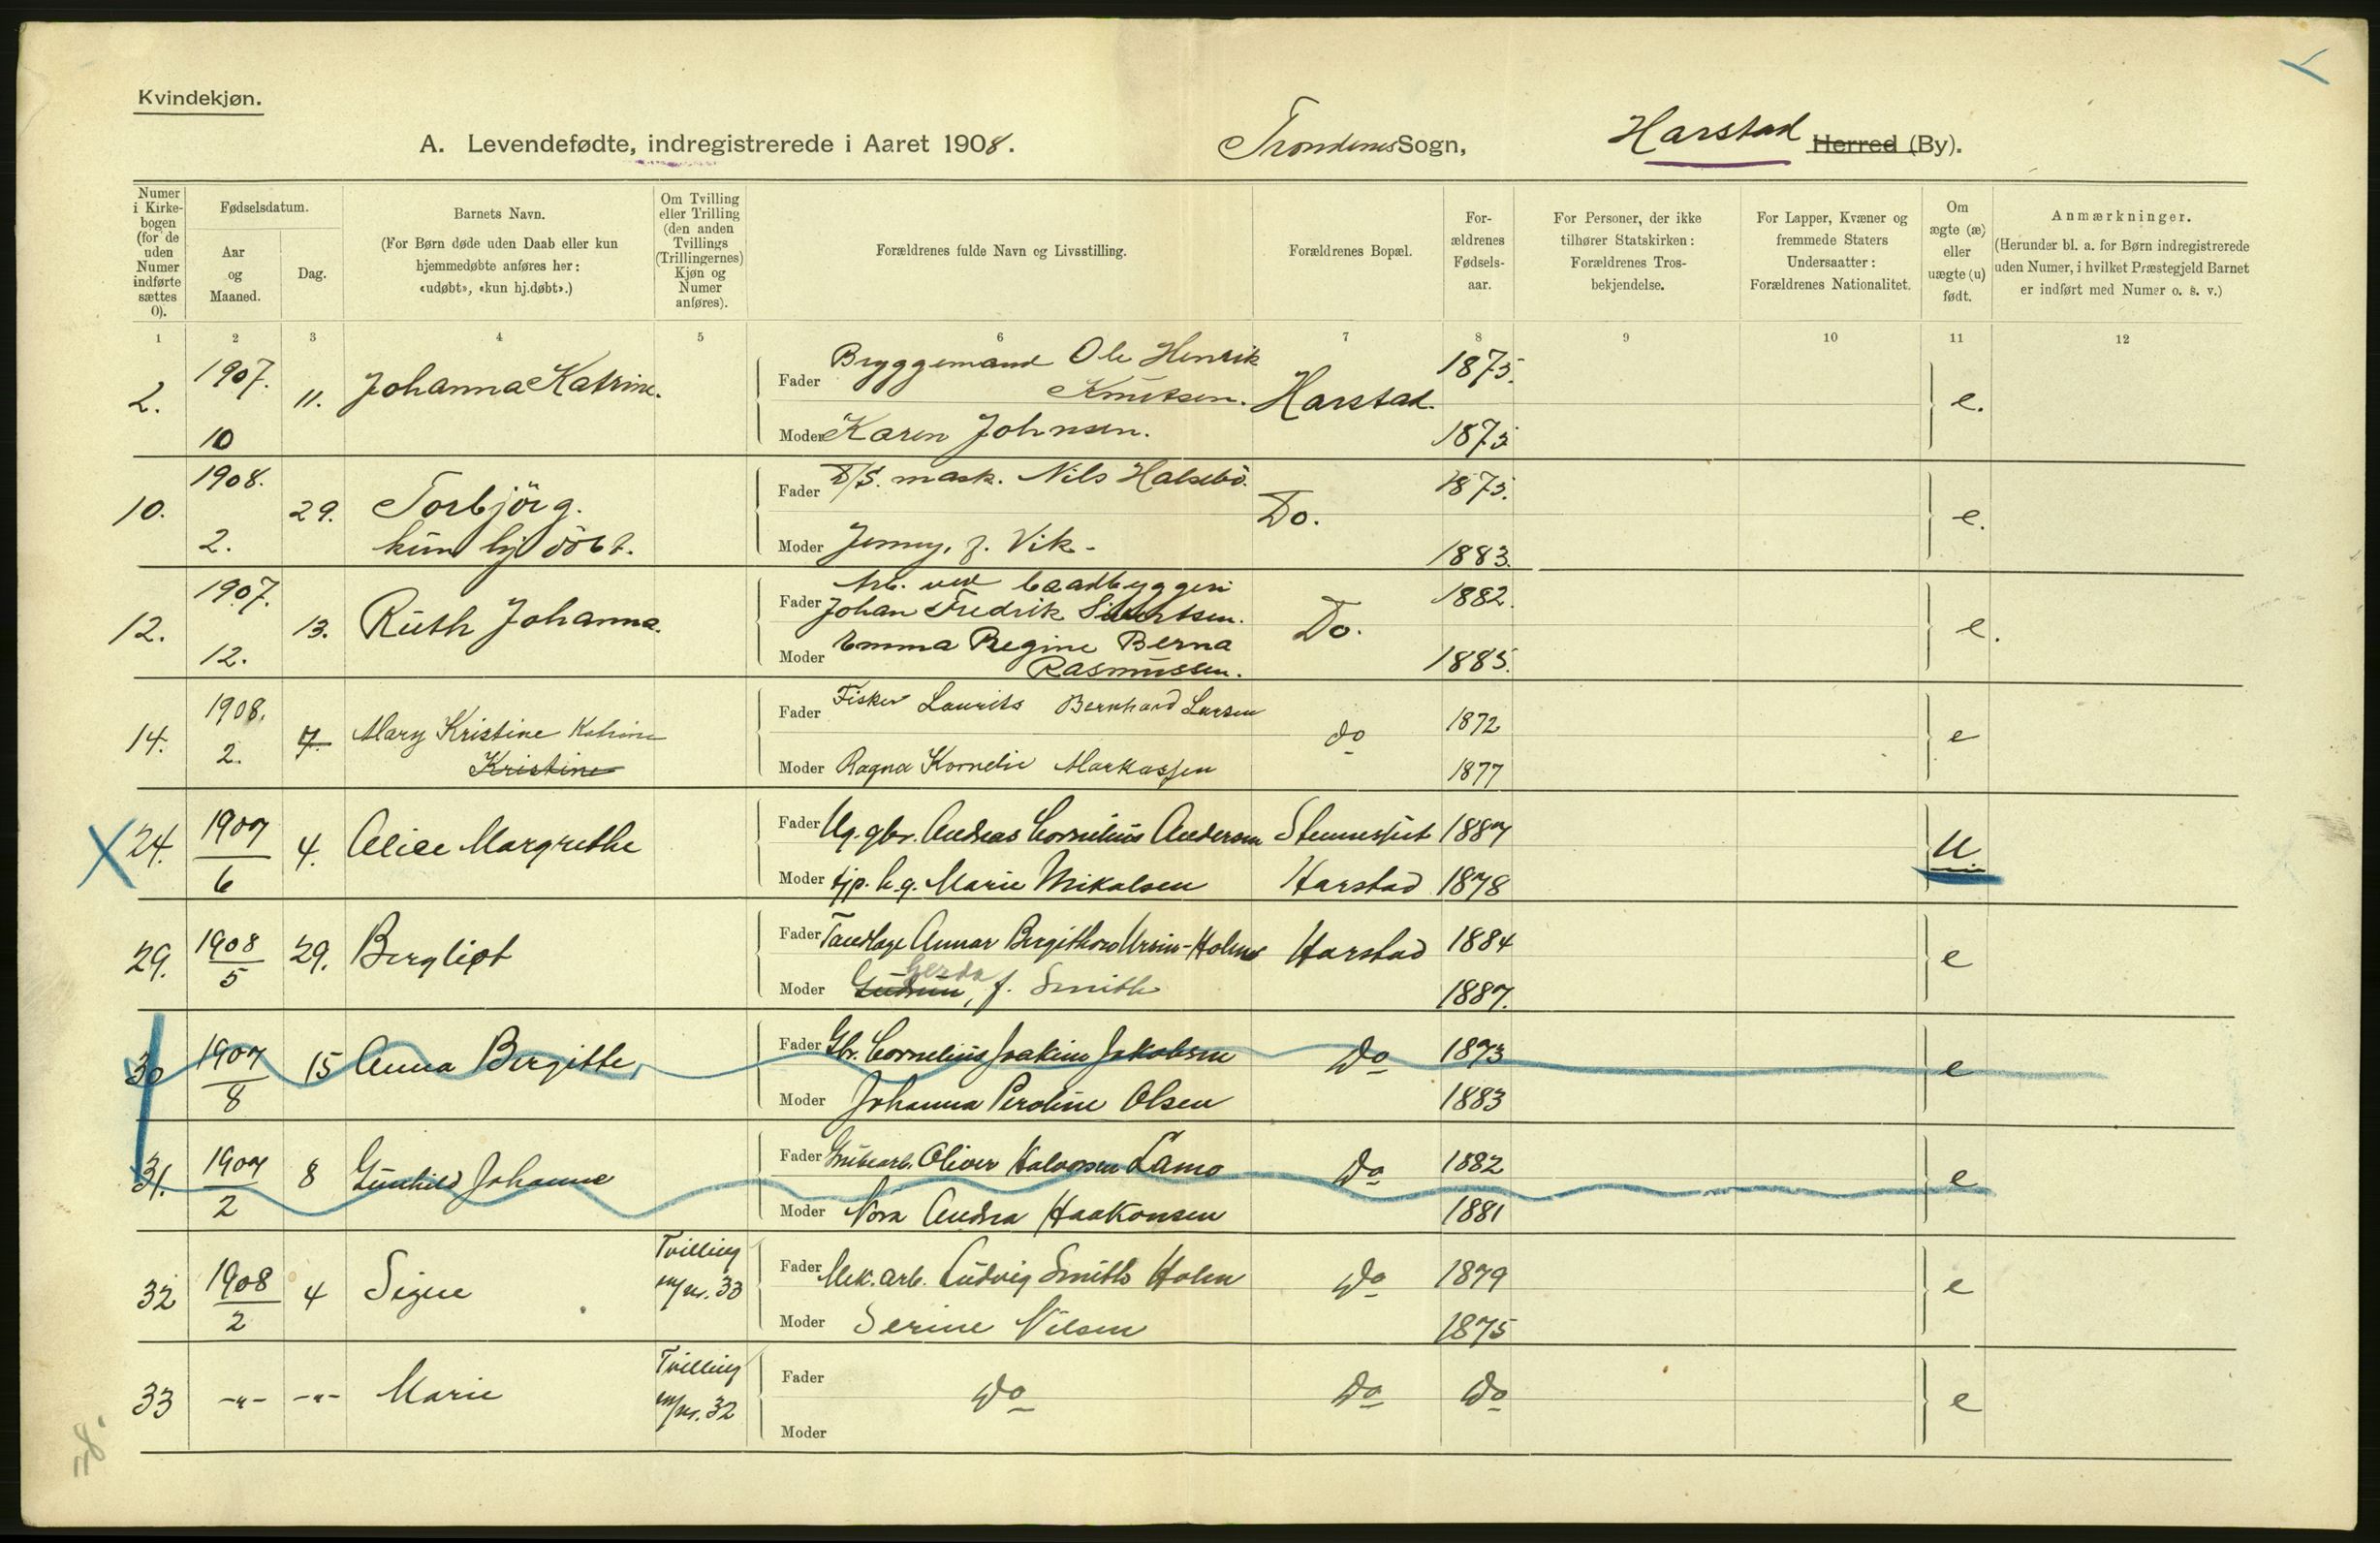 Kvindekjøn.
A. Levendefødte, indregistrerede i Aaret 1908.
Trondenes Sogn,
Harstad Herred (By).
Numer i Kirkebogen (for de uden Numer indførte sættes 0).
Fødselsdatum.
Aar og Maaned.
Dag.
Barnets Navn.
(For Børn døde uden Daab eller kun hjemmedøbte anføres her: «udøbt», «kun hj.døbt».)
Om Tvilling eller Trilling (den anden Tvillings (Trillingernes) Kjøn og Numer anføres).
Forældrenes fulde Navn og Livsstilling.
Forældrenes Bopæl.
Forældrenes Fødselsaar.
For Personer, der ikke tilhører Statskirken: Forældrenes Trosbekjendelse.
For Lapper, Kvæner og fremmede Staters Undersaatter: Forældrenes Nationalitet.
Om ægte (æ) eller uægte (u) født.
Anmærkninger.
(Herunder bl. a. for Børn indregistrerede uden Numer, i hvilket Præstegjeld Barnet er indført med Numer o. s. v.)
1 2 3 4 5 6 7 8 9 10 11 12
2. 1907. 10 11. Johanna Katrine.
Fader Bryggemand Ole Henrik Knutsen. Harstad. 1875. e.
Moder Karen Johnsen. 1875
10. 1908. 2. 29. Torbjörg. kun hj döbt.
Fader D/S. mask. Nils Halsebö. Do. 1875. e.
Moder Jenny, f. Vik. 1883.
12. 1907. 12. 13. Ruth Johanna.
Fader Arb. ved baadbyggeri Johan Fredrik Sivertsen. Do. 1882. e.
Moder Emma Regine Berna Rasmussen. 1885.
14. 1908. 2. 7. Mary Kristine Katrine
Kristine
Fader Fisker Laurits Bernhard Larsen do 1872 e
Moder Ragna Kornelie Markussen 1877
24. 1907 6 4. Alice Margrethe
Fader Ug. gbr. Andreas Cornelius Andersen 1887 U
Moder tjp. h.g. Marie Mikalsen Harstad 1878
29. 1908 5 29. Bergliot
Fader Tandlæge Annar Bergithon Ursin-Holme Harstad 1884 e
Moder Gudrun Gerda, f. Smith 1887.
30 1907 8 15 Anna Bergitte,
Fader Gbr. Cornelius Joakim Jakobsen Do 1873 e
Moder Johanna Peroline Olsen 1883
31. 1907 2 8 Gunhild Johanne
Fader Grubearb. Oliver Halvorsen Lamo Do 1882 e
Moder Nora Andrea Haakonsen 1881
32 1908 2 4 Signe Tvilling m/nr. 33
Fader Mek. arb. Ludvig Smith Holm Do 1879 e
Moder Serine Nilsen 1875
33 -"- -"- Marie Tvilling m/nr. 32
Fader Do Do Do e
Moder
78.